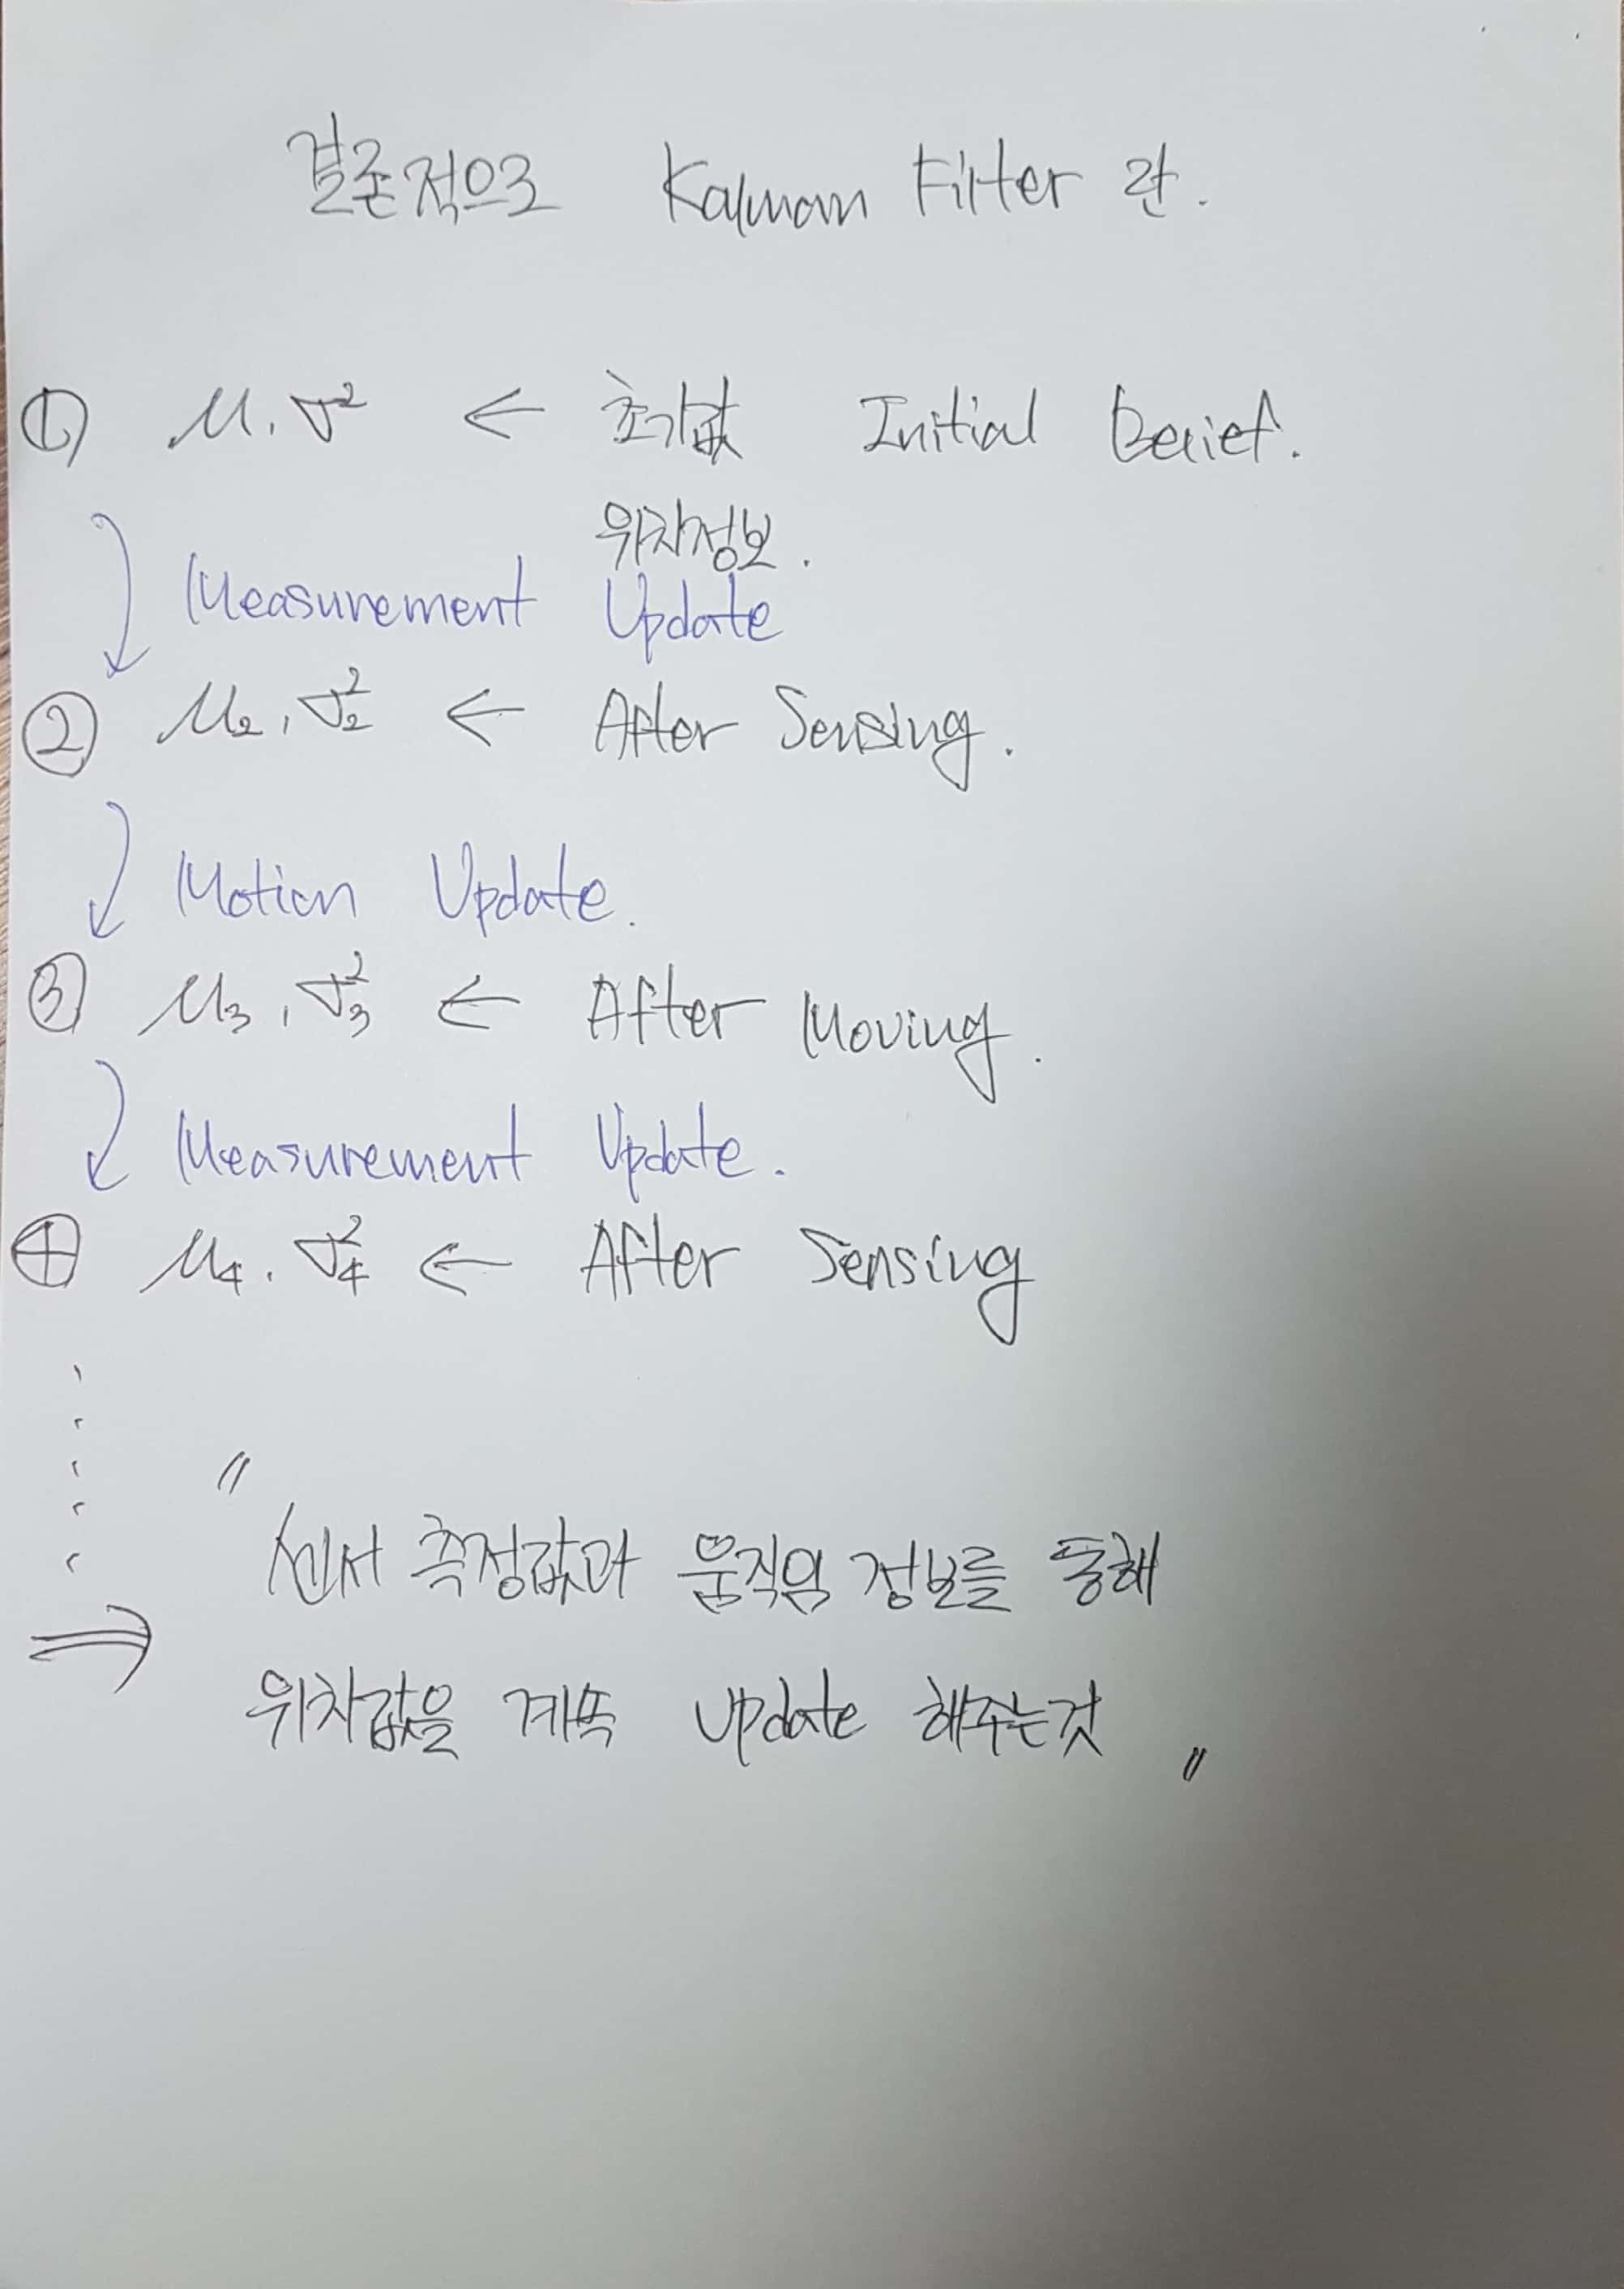 결론적으로 Kalman Filter 란.
① μ, σ² ← 초기값 Initial Belief.
위치정보.
Measurement Update
② μ₂, σ₂² ← After Sensing.
Motion Update.
③ μ₃, σ₃² ← After Moving.
Measurement Update.
④ μ₄, σ₄² ← After Sensing
"
센서 측정값과 움직임 정보를 통해
⇒ 위치값을 계속 Update 해주는것 "